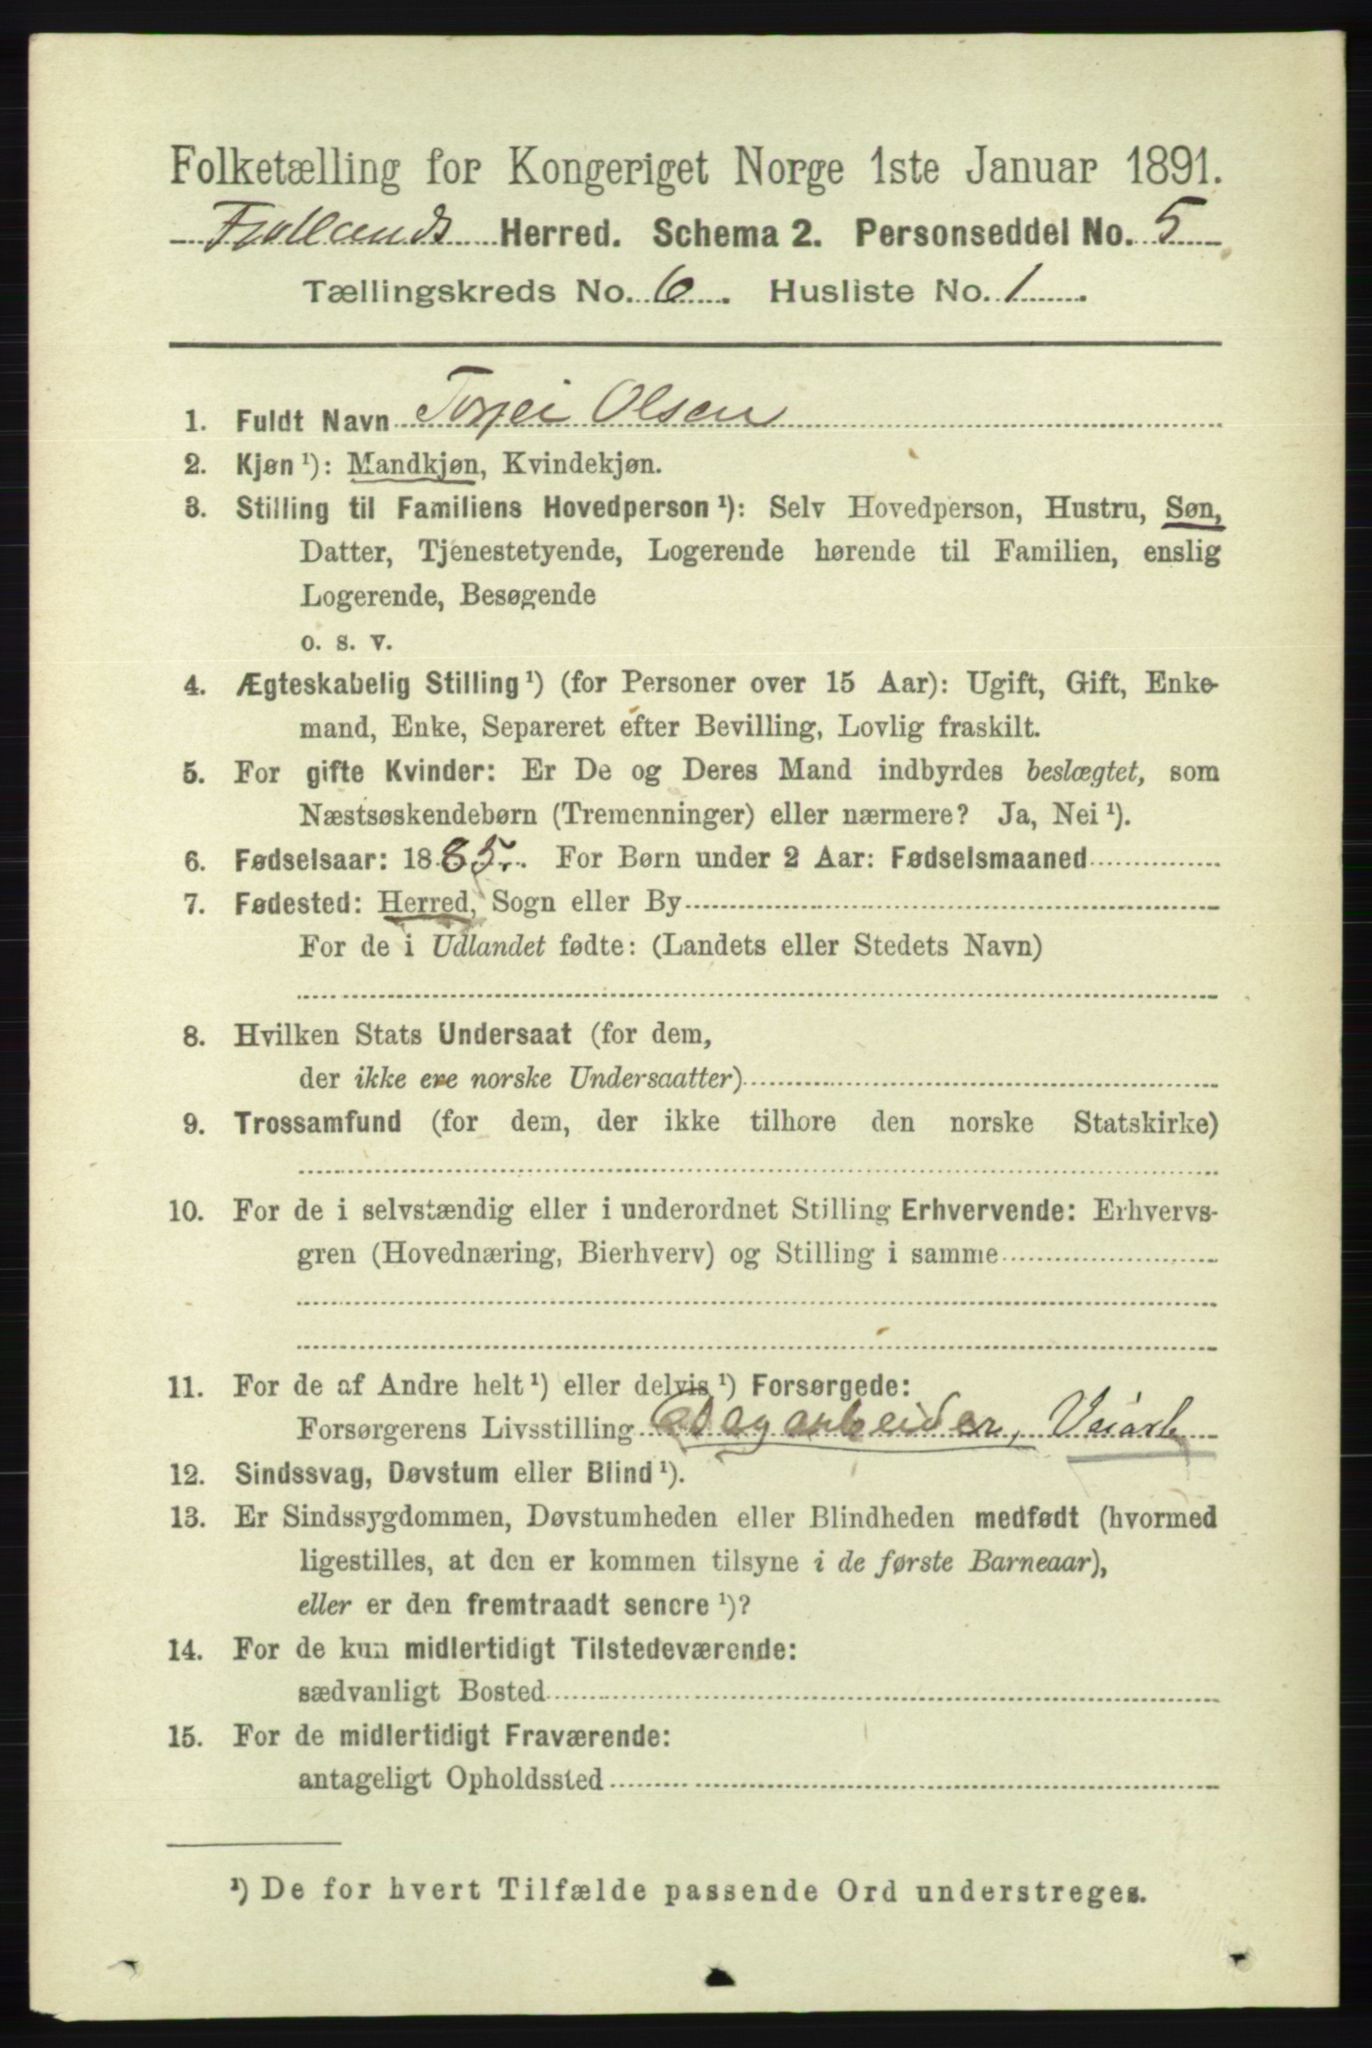 Folketælling for Kongeriget Norge 1ste Januar 1891.
Fjotlands Herred. Schema 2. Personseddel No. 5
Tællingskreds No. 6. Husliste No. 1.
1. Fuldt Navn Torjei Olsen
2. Kjøn ¹): Mandkjøn, Kvindekjøn.
3. Stilling til Familiens Hovedperson ¹): Selv Hovedperson, Hustru, Søn,
Datter, Tjenestetyende, Logerende hørende til Familien, enslig
Logerende, Besøgende
o. s. v.
4. Ægteskabelig Stilling ¹) (for Personer over 15 Aar): Ugift, Gift, Enke-
mand, Enke, Separeret efter Bevilling, Lovlig fraskilt.
5. For gifte Kvinder: Er De og Deres Mand indbyrdes beslægtet, som
Næstsøskendebørn (Tremenninger) eller nærmere? Ja, Nei ¹).
6. Fødselsaar: 1885. For Børn under 2 Aar: Fødselsmaaned
7. Fødested: Herred, Sogn eller By
For de i Udlandet fødte: (Landets eller Stedets Navn)
8. Hvilken Stats Undersaat (for dem,
der ikke ere norske Undersaatter)
9. Trossamfund (for dem, der ikke tilhøre den norske Statskirke)
10. For de i selvstændig eller i underordnet Stilling Erhvervende: Erhvervs-
gren (Hovednæring, Bierhverv) og Stilling i samme
11. For de af Andre helt ¹) eller delvis ¹) Forsørgede:
Forsørgerens Livsstilling Dagarbeider, Veiarb
12. Sindssvag, Døvstum eller Blind ¹).
13. Er Sindssygdommen, Døvstumheden eller Blindheden medfødt (hvormed
ligestilles, at den er kommen tilsyne i de første Barneaar),
eller er den fremtraadt senere ¹)?
14. For de kun midlertidigt Tilstedeværende:
sædvanligt Bosted
15. For de midlertidigt Fraværende:
antageligt Opholdssted
¹) De for hvert Tilfælde passende Ord understreges.